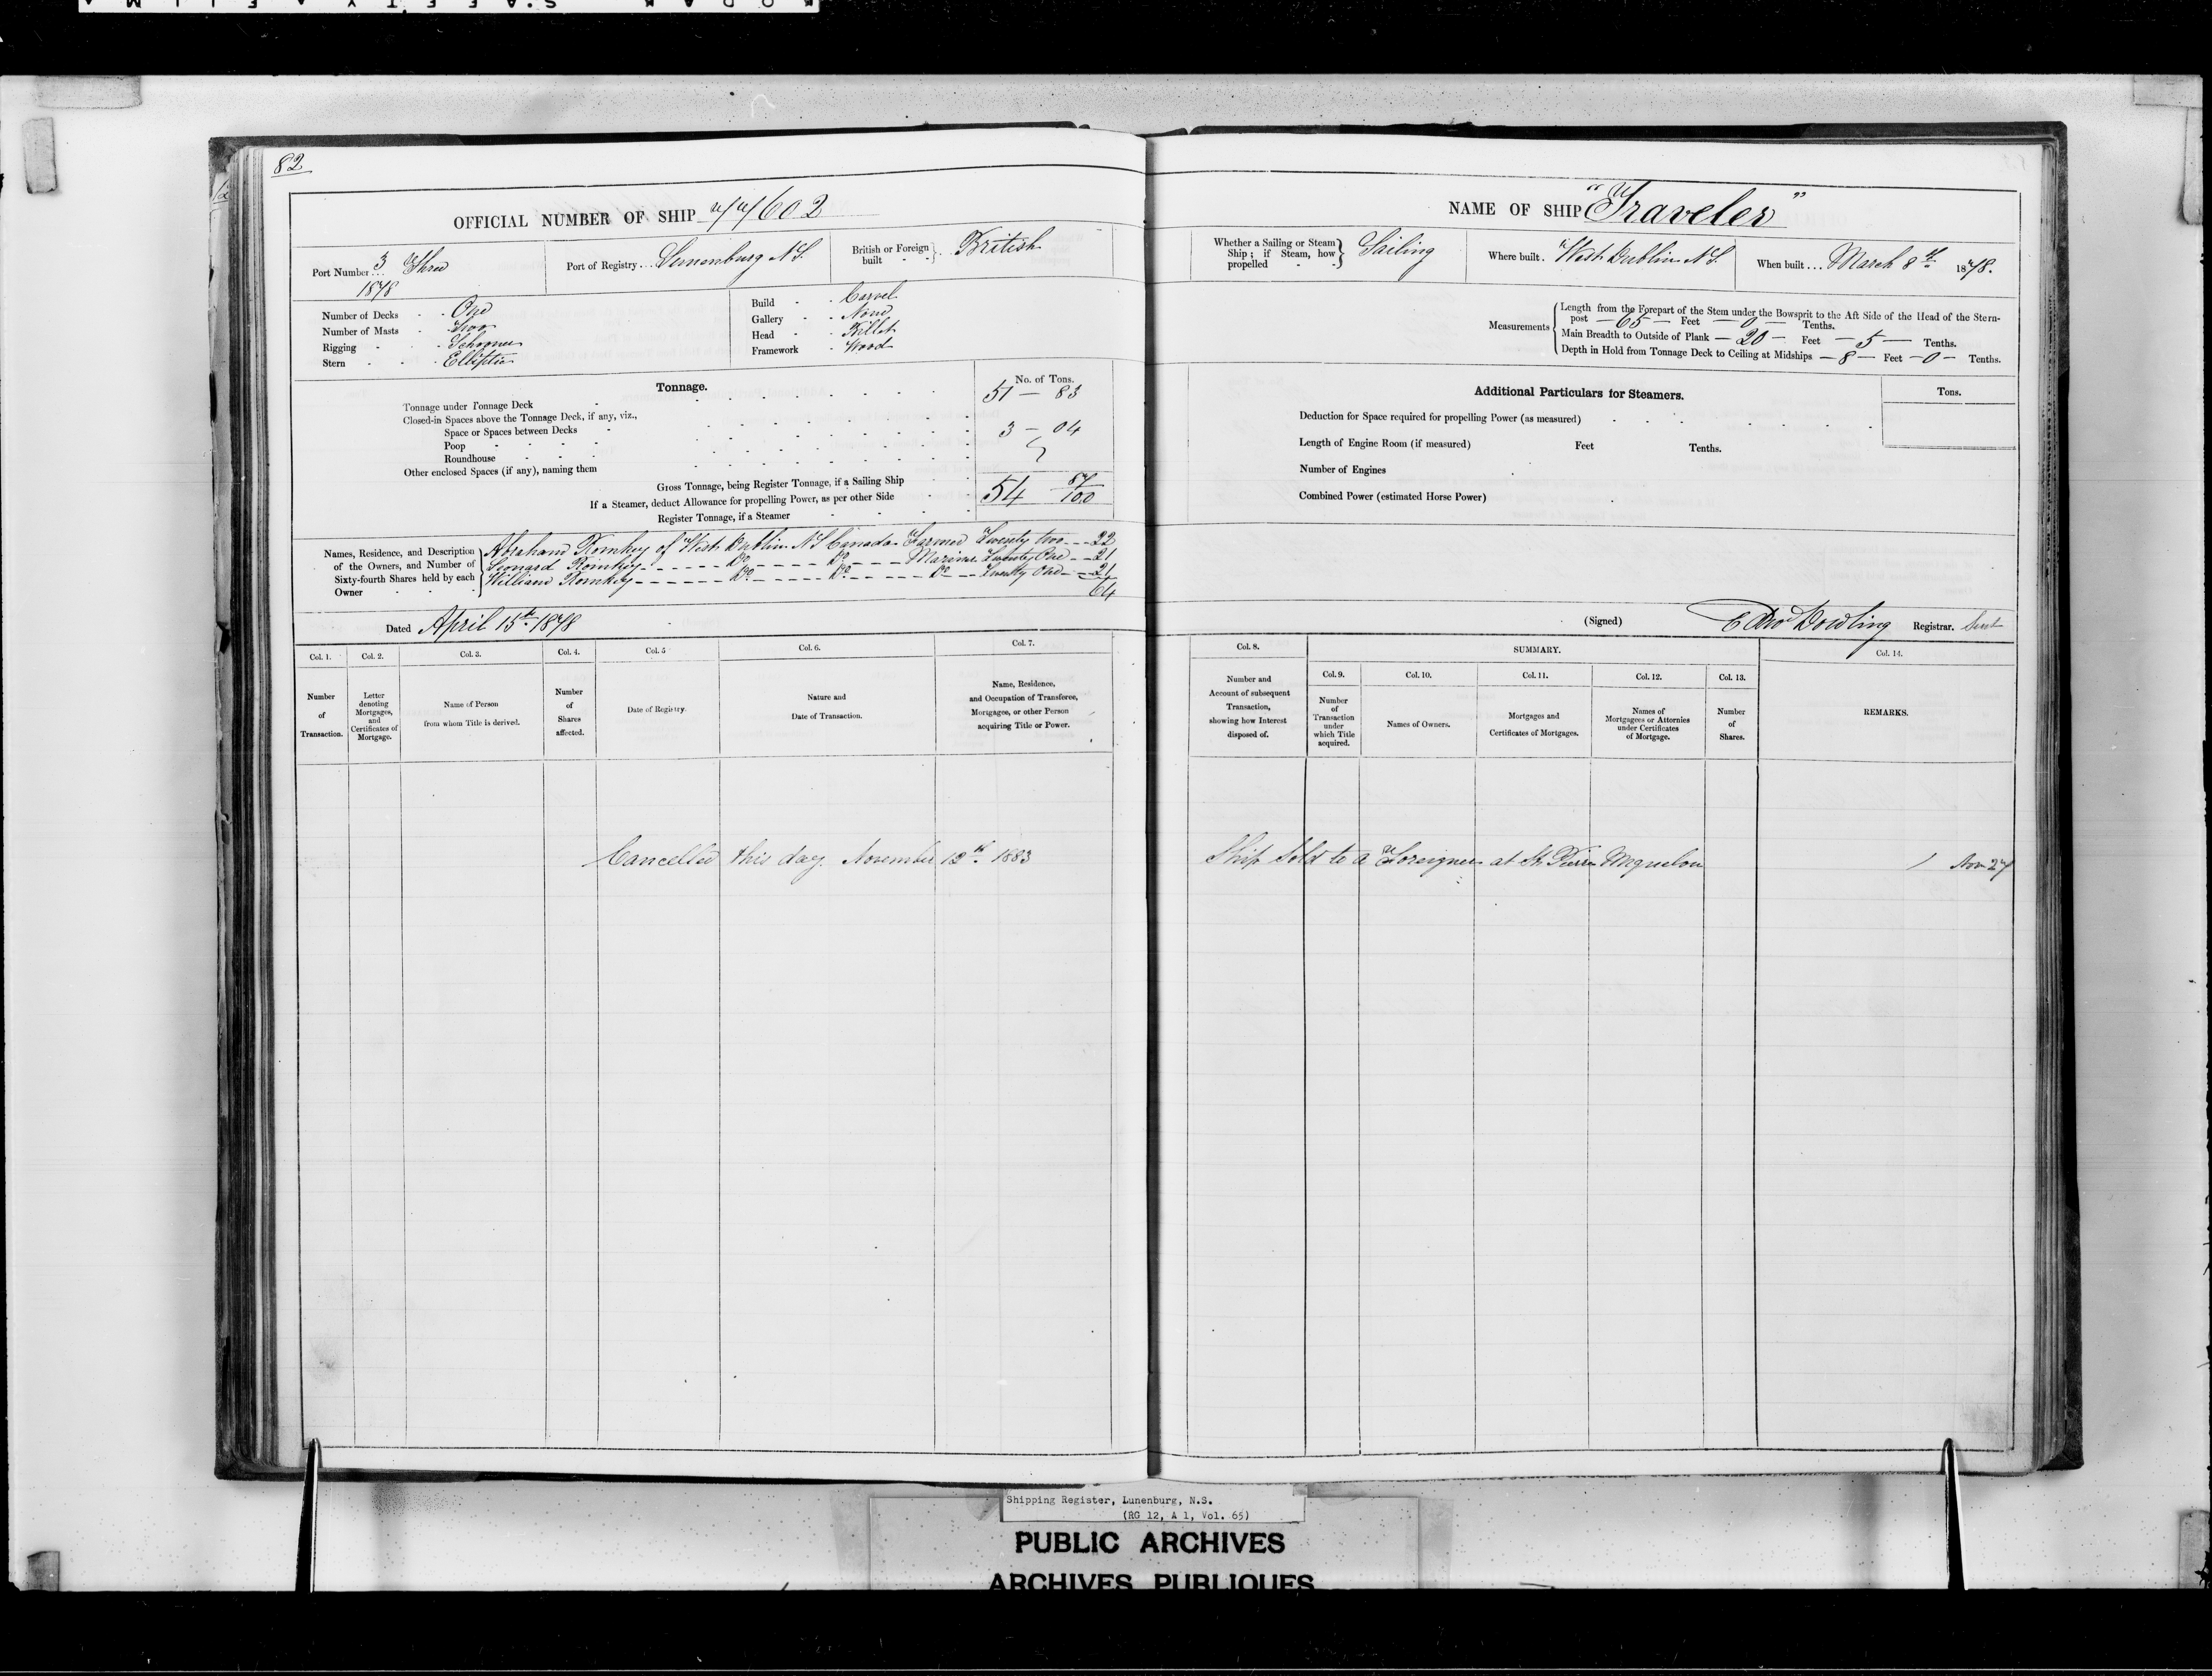 82
OFFICIAL NUMBER OF SHIP 77602
NAME OF SHIP "Traveler"
Port Number... 3 Three
1878
Port of Registry... Lunenburg N S.
British or Foreign built British
Whether a Sailing or Steam Ship; if Steam, how propelled Sailing
Where built. West Dublin N S.
When built... March 8th 1878.
Number of Decks One
Number of Masts Two
Rigging Schooner
Stern Elliptic
Build Carvel
Gallery None
Head Billet
Framework Wood
Measurements
Length from the Forepart of the Stem under the Bowsprit to the Aft Side of the Head of the Stern-
post — 65 — Feet — 0 — Tenths.
Main Breadth to Outside of Plank — 20 — Feet — 5 — Tenths.
Depth in Hold from Tonnage Deck to Ceiling at Midships — 8 — Feet — 0 — Tenths.
Tonnage. No. of Tons.
Tonnage under Tonnage Deck 51 — 83
Closed-in Spaces above the Tonnage Deck, if any, viz.,
Space or Spaces between Decks 3 — 04
Poop
Roundhouse
Other enclosed Spaces (if any), naming them
Gross Tonnage, being Register Tonnage, if a Sailing Ship 54 87/100
If a Steamer, deduct Allowance for propelling Power, as per other Side
Register Tonnage, if a Steamer
Additional Particulars for Steamers. Tons.
Deduction for Space required for propelling Power (as measured)
Length of Engine Room (if measured) Feet Tenths.
Number of Engines
Combined Power (estimated Horse Power)
Names, Residence, and Description of the Owners, and Number of Sixty-fourth Shares held by each Owner
Abraham Romkey of West Dublin N S Canada Farmer Twenty two - - 22
Leonard Romkey - - - Do - - - Do - - - Mariner Twenty One - - 21
William Romkey - - - Do - - - Do - - - Do - - Twenty One - - 21
64
Dated April 15th 1878
(Signed) Dowling Registrar.
Col. 1. Number of Transaction.
Col. 2. Letter denoting Mortgages, and Certificates of Mortgage.
Col. 3. Name of Person from whom Title is derived.
Col. 4. Number of Shares affected.
Col. 5 Date of Registry.
Col. 6. Nature and Date of Transaction.
Col. 7. Name, Residence, and Occupation of Transferee, Mortgagee, or other Person acquiring Title or Power.
Col. 8. Number and Account of subsequent Transaction, showing how Interest disposed of.
SUMMARY.
Col. 9. Number of Transaction under which Title acquired.
Col. 10. Names of Owners.
Col. 11. Mortgages and Certificates of Mortgages.
Col. 12. Names of Mortgagees or Attornies under Certificates of Mortgage.
Col. 13. Number of Shares.
Col. 14. REMARKS.
Cancelled this day. November 1883
Ship Sold to a Foreigner at St. Pierre Miquelon
Shipping Register, Lunenburg, N.S.
(RG 12, A 1, Vol. 65)
PUBLIC ARCHIVES
ARCHIVES PUBLIQUES